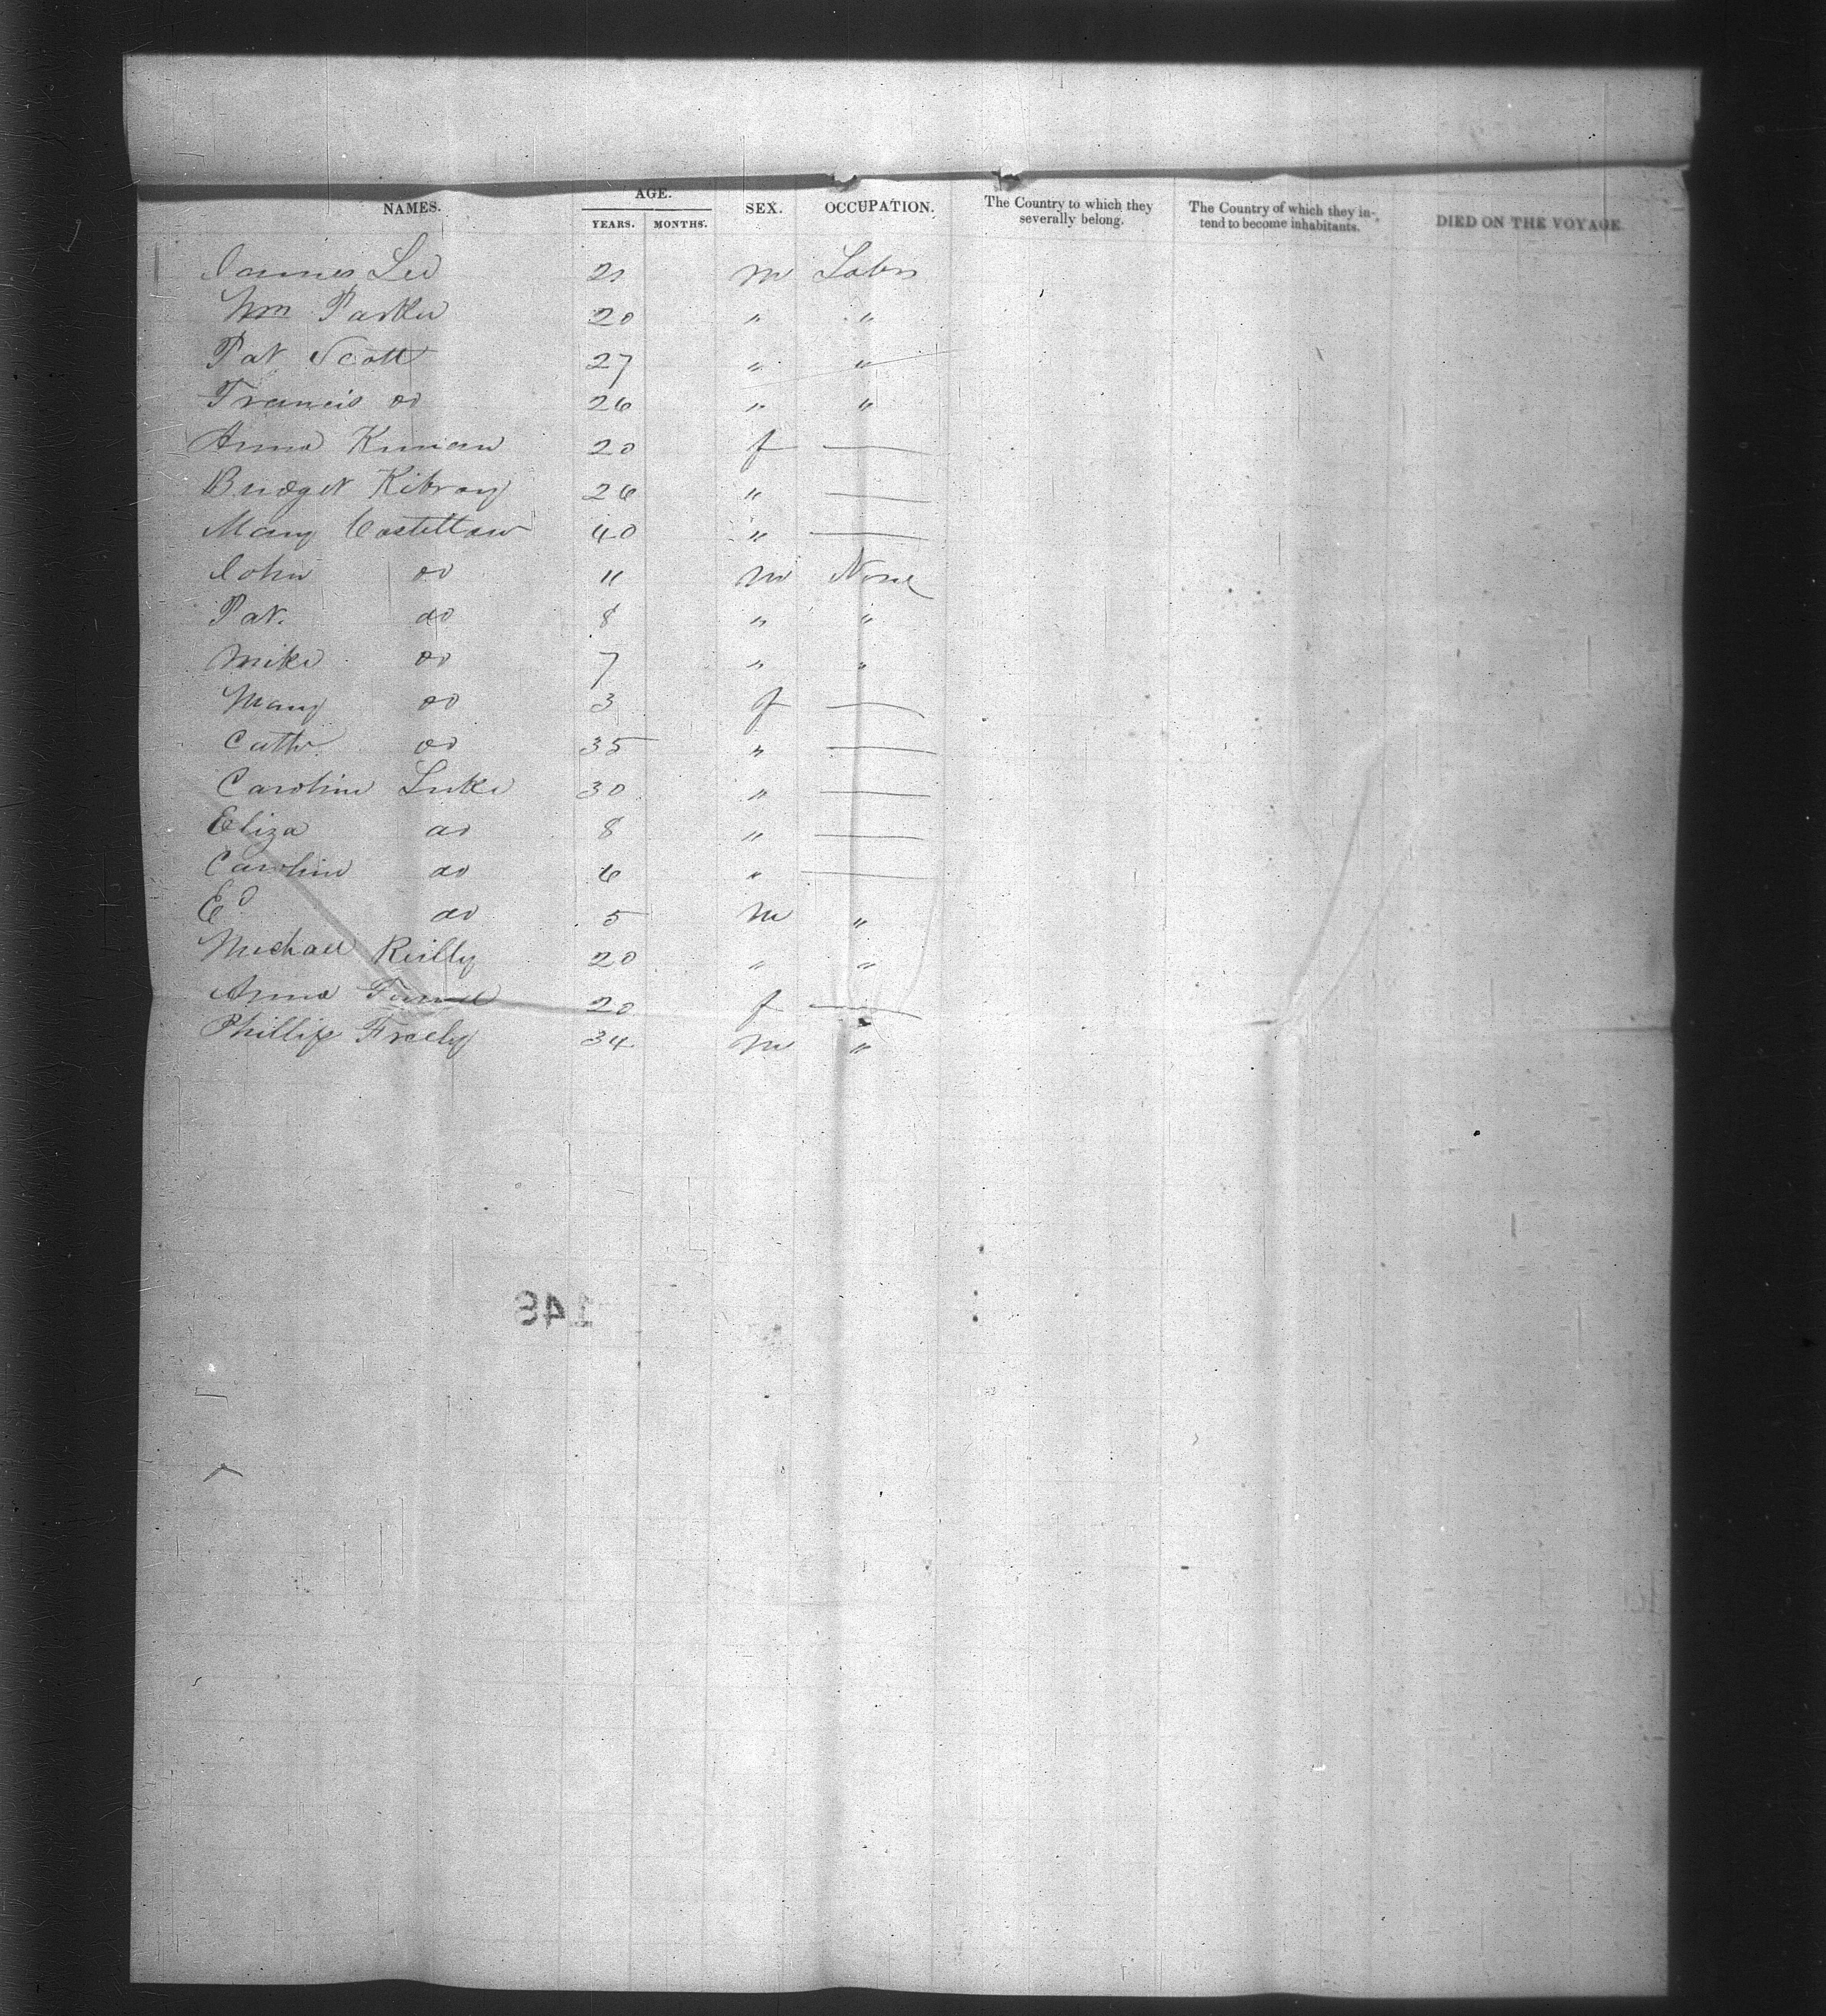 NAMES. AGE. SEX. OCCUPATION. The Country to which they severally belong. The Country of which they in-tend to become inhabitants. DIED ON THE VOYAGE.
YEARS. MONTHS.
James Lee 21 m Labr
Wm Parker 20 " "
Pat Scott 27 " "
Francis do 26 " "
Anna 20 f —
Bridget Kilroy 26 " —
Mary Costellaw 40 " —
John do 11 m None
Pat. do 8 " "
Mike do 7 " "
Mary do 3 f —
Cath. do 35 " —
Caroline Luke 30 " —
Eliza do 8 " —
Caroline do 6 " —
Ed do 5 m "
Michael Reilly 20 " "
Anna 20 f —
Phillip Freely 34 m "
148